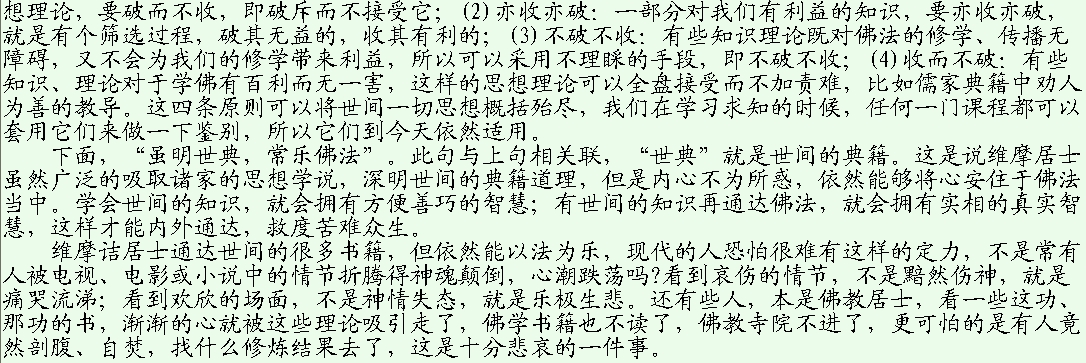 想理论，要破而不收，即破斥而不接受它；(2)亦收亦破：一部分对我们有利益的知识，要亦收亦破，
就是有个筛选过程，破其无益的，收其有利的；(3)不破不收：有些知识理论既对佛法的修学、传播无
障碍，又不会为我们的修学带来利益，所以可以采用不理睬的手段，即不破不收；(4)收而不破：有些
知识、理论对于学佛有百利而无一害，这样的思想理论可以全盘接受而不加责难，比如儒家典籍中劝人
为善的教导。这四条原则可以将世间一切思想概括殆尽，我们在学习求知的时候，任何一门课程都可以
套用它们来做一下鉴别，所以它们到今天依然适用。
下面，“虽明世典，常乐佛法”。此句与上句相关联，“世典”就是世间的典籍。这是说维摩居士
虽然广泛的吸取诸家的思想学说，深明世间的典籍道理，但是内心不为所惑，依然能够将心安住于佛法
当中。学会世间的知识，就会拥有方便善巧的智慧；有世间的知识再通达佛法，就会拥有实相的真实智
慧，这样才能内外通达，救度苦难众生。
维摩诘居士通达世间的很多书籍，但依然能以法为乐，现代的人恐怕很难有这样的定力，不是常有
人被电视、电影或小说中的情节折腾得神魂颠倒，心潮跌荡吗?看到哀伤的情节，不是黯然伤神，就是
痛哭流涕；看到欢欣的场面，不是神情失态，就是乐极生悲。还有些人，本是佛教居士，看一些这功、
那功的书，渐渐的心就被这些理论吸引走了，佛学书籍也不读了，佛教寺院不进了，更可怕的是有人竟
然剖腹、自焚，找什么修炼结果去了，这是十分悲哀的一件事。